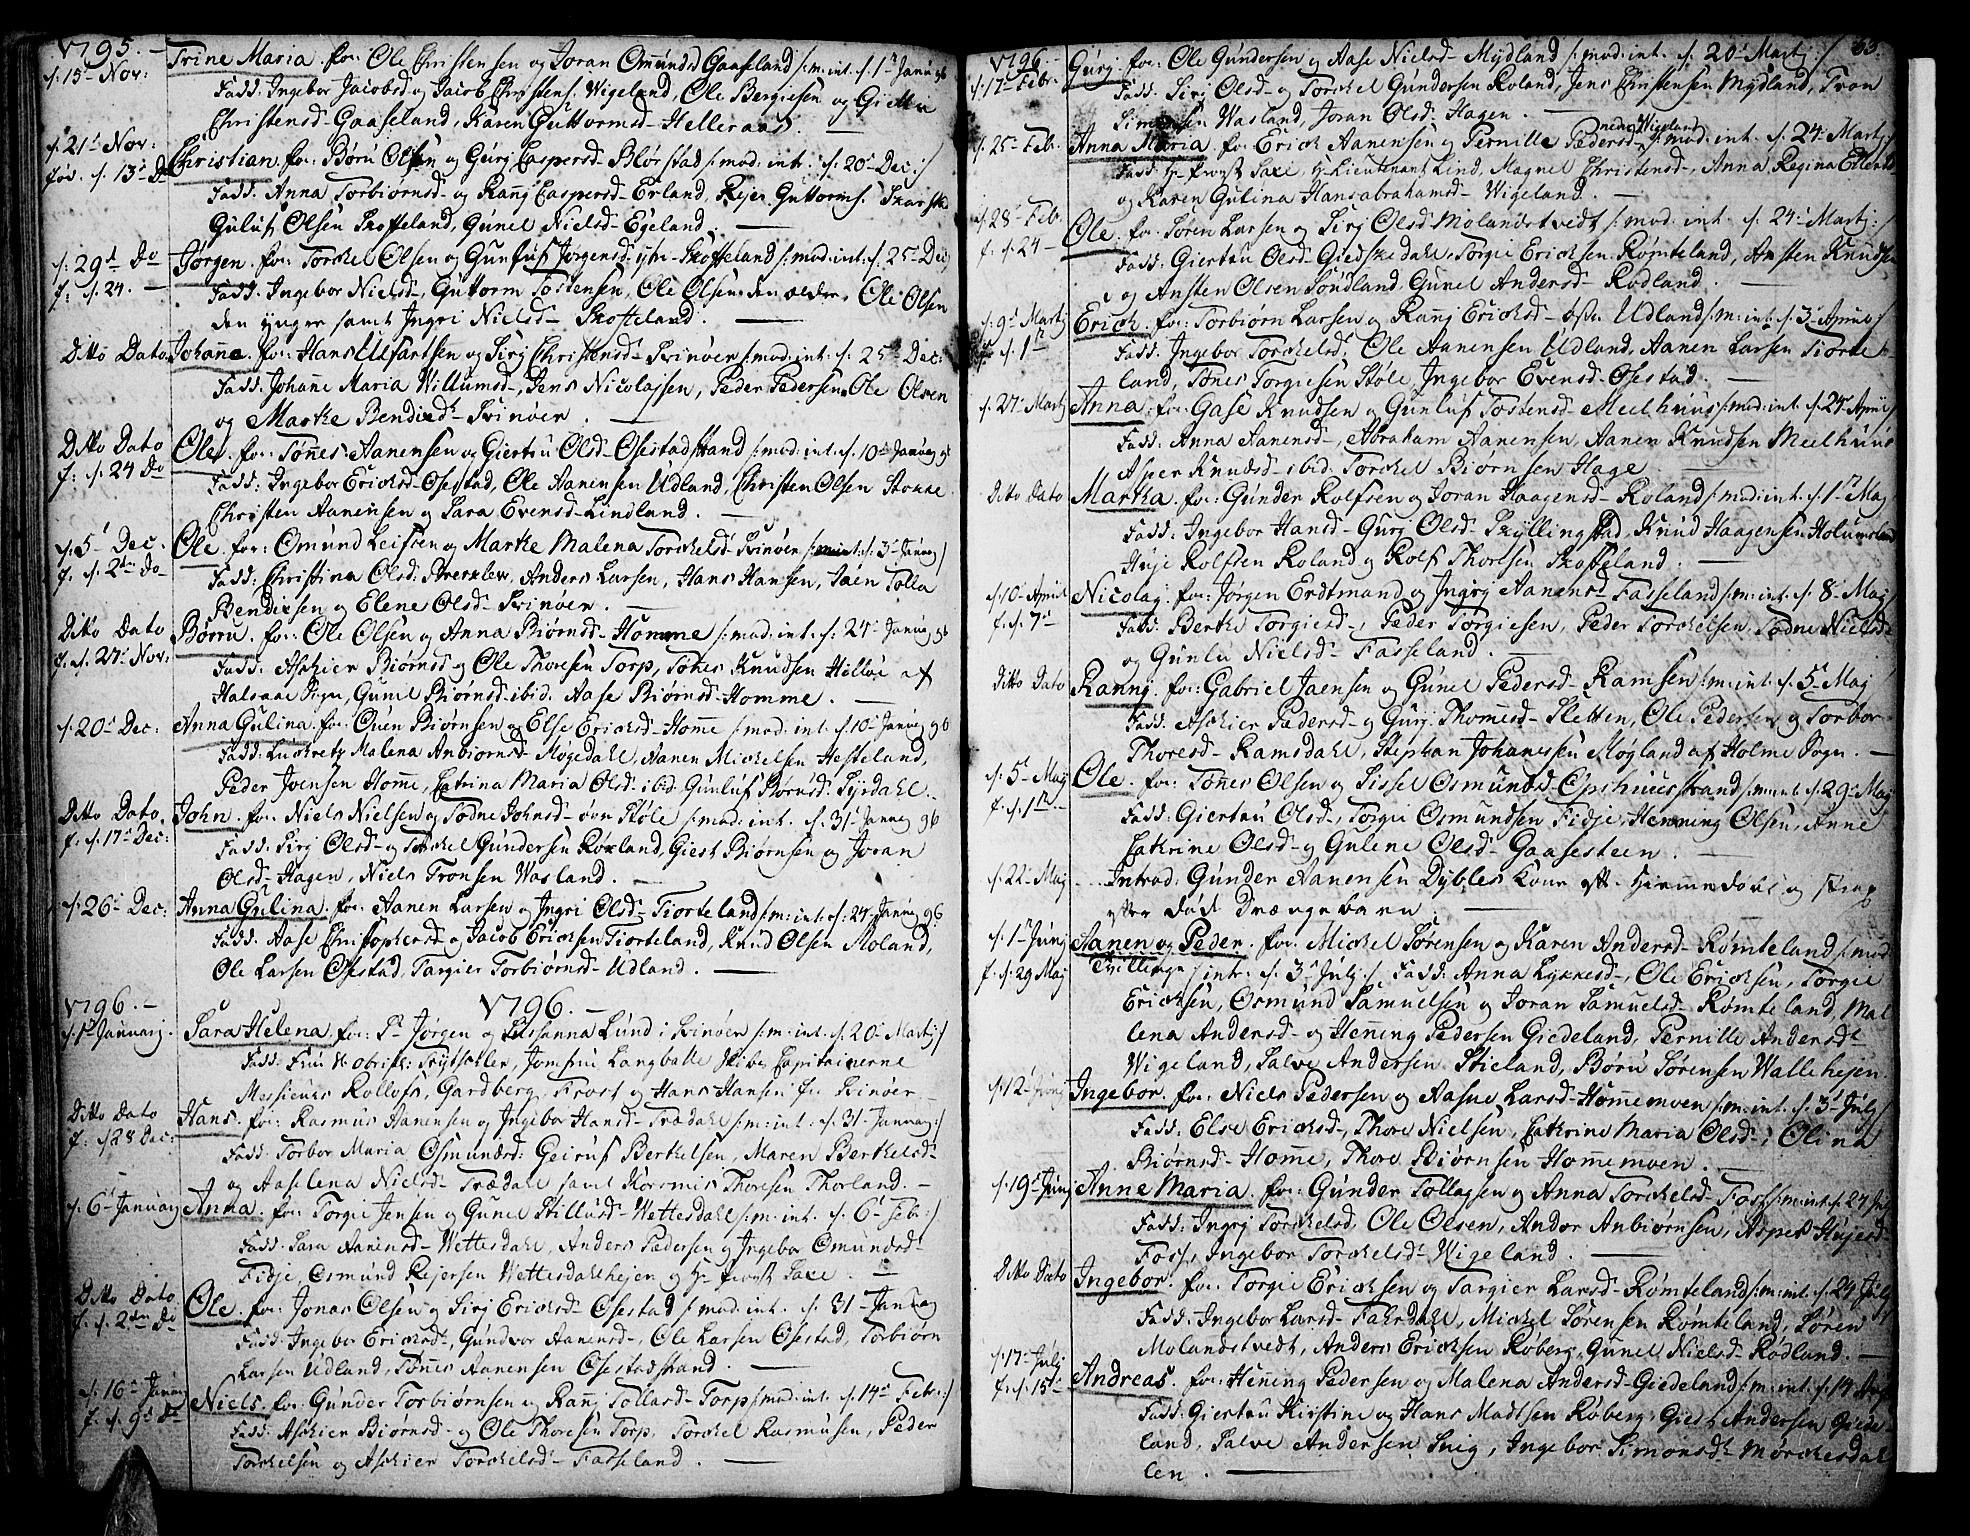 1795.
d. 15de Nov: Trine Maria. for: Ole Christensen og Joran Omunds Gaaseland /: m: int. d. 1te Janu: 96
Fadd: Ingebor Jacobsd og Jacob Christens: Wigeland, Ole Bergiesen og
Christensd Gaaseland, Karen Guttormsd Helleraas.
d. 21de Nov: Christian. for: Børu Olsen og Gurj Caspersd Blørstad /: mod: int. d. 20de Dec: /
fød. d. 13de Do Fadd: Anna Torbiørnsd og Ranj Caspersd Erland, Rejer Guttorms:
Guluf Olsen Skoffeland, Gunel Nielsd Egeland.
d. 29de Do Jørgen. for: Torckel Olsen og Gunluf Jørgensd Skoffeland /: mod: int: d. 25de Dec
f: d. 24. Fadd: Ingebor Nielsd, Guttorm Tostensen, Ole Olsen den ældre, Ole Olsen
den yngre samt Ingri Nielsd Skoffeland.
Ditto Dato Johanne. for: Hans Ulfartsen og Sirj Christensd Svinøer /: mod: int: d. 25 Dec:
Fadd: Johanne Maria Willumsd, Jens Nicolajsen, Peder Pedersen, Ole Olsen
og Marthe Bendixd Svinøer.
Ditto Dato Ole. for: Tønnes Aanensen og Giertru Olsd Ofestadstrand /: mod: int: d. 10de Januarj 96
f: d. 24 Do Fadd: Ingebor Ericksd Ofestad, Ole Aanensen Udland, Christen Olsen Stokke
Christen Aanensen og Sara Evensd Lindland.
d. 5te Dec. Ole. for: Omund Leifsen og Marthe Malena Torckelsd Svinøer /: m: int: d. 3de Januarj /
f. d. 2den do Fadd: Christina Olsd, Anders Larsen, Hans Hansen, Jaen Tolla
Bendixsen og Elene Olsd Svinøer.
Ditto Dato Børru. for: Ole Olsen og Anna Biørnsd Homme /: mod: int: d. 24de Januarj 96
f. d. 27de Nov: Fadd: Aschier Biørnsd og Ole Thoresen Torp, Tønes Knudsen Hilløe af
Halsaae Sogn, Gunil Biørnsd ibid. Aase Biørnsd Homme.
d. 20de Dec: Anna Gulina. for: Ouen Biørnsen og Else Ericksd Homme /: mod: int: d. 10de Januarj 96
Fadd: Malena Anbiørnsd Møgedahl, Aanen Mickelsen Hesteland,
Peder Joensen Homme, Catrina Maria Olsd ibid. Gunluf Biørnsd Syrdahl.
Ditto Dato John. for: Niels Nielsen og Todne Johnsd øvr Støle /: mod: int. d. 31de Januarj 96
f: d. 17de Dec: Fadd: Sirj Olsd og Torckel Gundersen Røxland, Giest Biørnsen og Joran
Olsd Hagen, Niels Tronsen Wasland.
d. 26de Dec: Anna Gulina. for: Aanen Larsen og Ingri Olsd Tiorteland /: m: int: d. 24de Januarj 96
Fadd: Aase Christophersd og Jacob Ericksen Tiorteland, Knud Olsen Moland,
Ole Larsen Ofestad, Targier Torbiørnsd Udland.
1796. 1796.
d. 1te Januarj. Sara Helena. for: Sr Jørgen og Susanna Lund i Svinøer /: m: int: d. 20de Martj: /
Fadd: Fru Obristl:, Jomfru Langballe Capitainerne
Messieurs Rolloff, Gardberg, Frost og Hans Hansen Jr. Svinøer
Ditto Dato Hans. for: Rasmus Aanensen og Ingebor Hansd Trædahl /: m: int: d. 31de Januarj: /
f: d 28 Dec: Fadd: Torbor Maria Osmundsd: Geiruf Berthelsen, Maren Berthelsd
og Aaselena Nielsd Trædahl samt Thoresen Thorland.
d. 6te Januarj Anna. for: Torgie Jensen og Gunel Wettesdahl /: m: int. d. 6te Febr: /
Fadd: Sara Aanensd Wettesdahl, Anders Pedersen og Ingebor Omundsd
Fidje, Osmund Rejersen Wettesdahlhejen og Hr Provst Saxe.
Ditto Dato Ole. for: Jonas Olsen og Sirj Ericksd Ofestad /: mod: int. d. 31de Januarj
f. d. 2den Do Fadd: Ingebor Ericksd, Gundvor Aanensd, Ole Larsen Ofestad, Torbiørn
Larsen Udland, Tønnes Aanensen Ofestadstrand.
d. 16de Januarj Niels. for: Gunder Torbiørnsen og Ranj Tollasd Torp /: mod: int: d. 14de Febr: /
f. d. 9de Do Fadd: Aschier Biørnsd og Ole Thoresen Torp, Torckel Rasmusen, Peder
Torckelsen og Aschier Torckelsd Fasseland.
1796. 63.
d. 17de Febr. Gurj. for: Ole Gundersen og Aase Nielsd Mydland /: mod: int. d. 20de Martj: /
Fadd: Sirj Olsd og Torckel Gundersen Roland, Jens Christensen Mydland, Tron
Simonsen Wasland, Joran Olsd Hagen.
nedre Wigeland
d. 25de Febr. Anna Maria. for: Erick Aanensen og Pernille Pedersd /: mod: int. d. 24de Martj /
Fadd: Hr Provst Saxe, Hr Lieutenant Lind, Magnel Christensd, Anna Regina
og Karen Gulina Hansabrahamsd Wigeland.
d. 28de Feb. Ole. for: Soren Larsen og Sirj Olsd Molandstvedt /: mod: int. d. 24de Martj: /
f. d. 24 Fadd: Giertru Olsd Giedskedahl, Torgie Ericksen Rømteland, Ansten Knudsen
og Ansten Olsen Sondland, Gunel Andersd Rodland.
d. 9de Martj Erick. for: Torbiørn Larsen og Ranj Ericksd Udland /: m: int: d. 3de Aprill /
d. 1te Fadd: Ingebor Torckelsd, Ole Aanensen Udland, Aanen Larsen Tiorte
land, Tønes Torgiesen Støle, Ingebor Evensd Ofestad.
d. 27de Martj Anna. for: Gase Knudsen og Gunluf Tostensd Meelhuus /: mod: int: d. 24de Aprill /
Fadd: Anna Aanensd, Abraham Aanensen, Aanen Knudsen Meelhuus
Asper Knudsd ibid. Torckel Biørnsen Hage.
Ditto Dato Martha. for: Gunder Rolfsen og Joran Haagensd Roland /: mod: int: d. 1te Maj
Fadd: Ingebor Hansd Gurj Olsd Skyllingstad, Knud Haagensen
Huje Rolfsen Roland og Rolf Thoresen Skoffeland.
d. 10de April Nicolaj. for: Jørgen Erdtmand og Ingrj Aanensd Fasseland /: m: int: d. 8de Maj /
f. d. 7de Fadd: Berthe Torgiesd, Peder Torgiesen, Peder Torckelsen Todne Nielsd
og Gunlu Nielsd Fasseland.
Ditto Dato Ranny. for: Gabriel Jaensen og Gunel Pedersd Ramsen /: m: int: d. 5te Maj
Fadd: Aschier Pedersd og Gurj Thomesd Sletten, Ole Pedersen og Torbor
Thoresd Ramsdahl, Stephan Johannessen Møgland af Holme Sogn
d. 5te Maj Ole. for: Tønnes Olsen og Sissel Osmunds Ofshuusstrand /: m: int. d. 29de Maj
f. d. 1te Fadd: Giertru Olsd, Torgie Osmundsen Fidje, Henning Olsen, Anne
Cathrine Olsd og Gulene Olsd Gaasesteen.
d. 22de Maj Introd: Gunder Aanensen Dybles Kone eft. Hiemmedøbt og strax
efter død Drængebarn.
d. 1te Junj Aanen og Peder. for: Mickel Sørensen og Karen Andersd Rømteland /: mod:
f: d. 29 Maj Tvillinge / intr: d. 3de Julj / Fadd: Anna Lykkesd, Ole Ericksen, Torgie
Ericksen, Osmund Samuelsen og Joran Samuelsd Rømteland, Ma
lena Andersd og Henning Pedersen Giedeland, Pernille Andersd
Wigeland, Salve Andersen Stieland, Børu Sørensen Wallehejen.
d. 12de Junj Ingebor. for: Niels Pedersen og Aasne Larsd Hommemoen /: m: int. d. 3de Julj /
Fadd: Else Ericksd, Thore Nielsen, Cathrine Maria Olsd, Olina
Biørnsd Homme, Thore Biørnsen Hommemoen.
d. 19de Junj Anne Maria. for: Gunder Tollagsen og Anna Torckelsd Foss /: m: int: d. 24 Julj
Fadd: Ingrj Torckelsd, Ole Olsen, Andor Anbiørnsen, Asper Hujesd
Foss, Ingebor Torckelsd Wigeland.
Ditto Dato Ingebor. for: Torgie Ericksen og Targier Larsd Rømteland /: m: int. d. 24 Julj
Fadd: Ingebor Larsd Fahrdahl, Mickel Sørensen Rømteland, Søren
Molandstvedt, Anders Ericksen Røberg, Gunel Nielsd Rødland.
d. 17de Julj Andreas. for: Henning Pedersen og Malena Andersd Giedeland /: m: int. d. 14
f. d. 15de Fadd: Giertru Kirstine og Hans Madtsen Røberg, Giest Andersen Giede
land, Salve Andersen Snig, Ingebor Simonsd Mørckesdal
len.